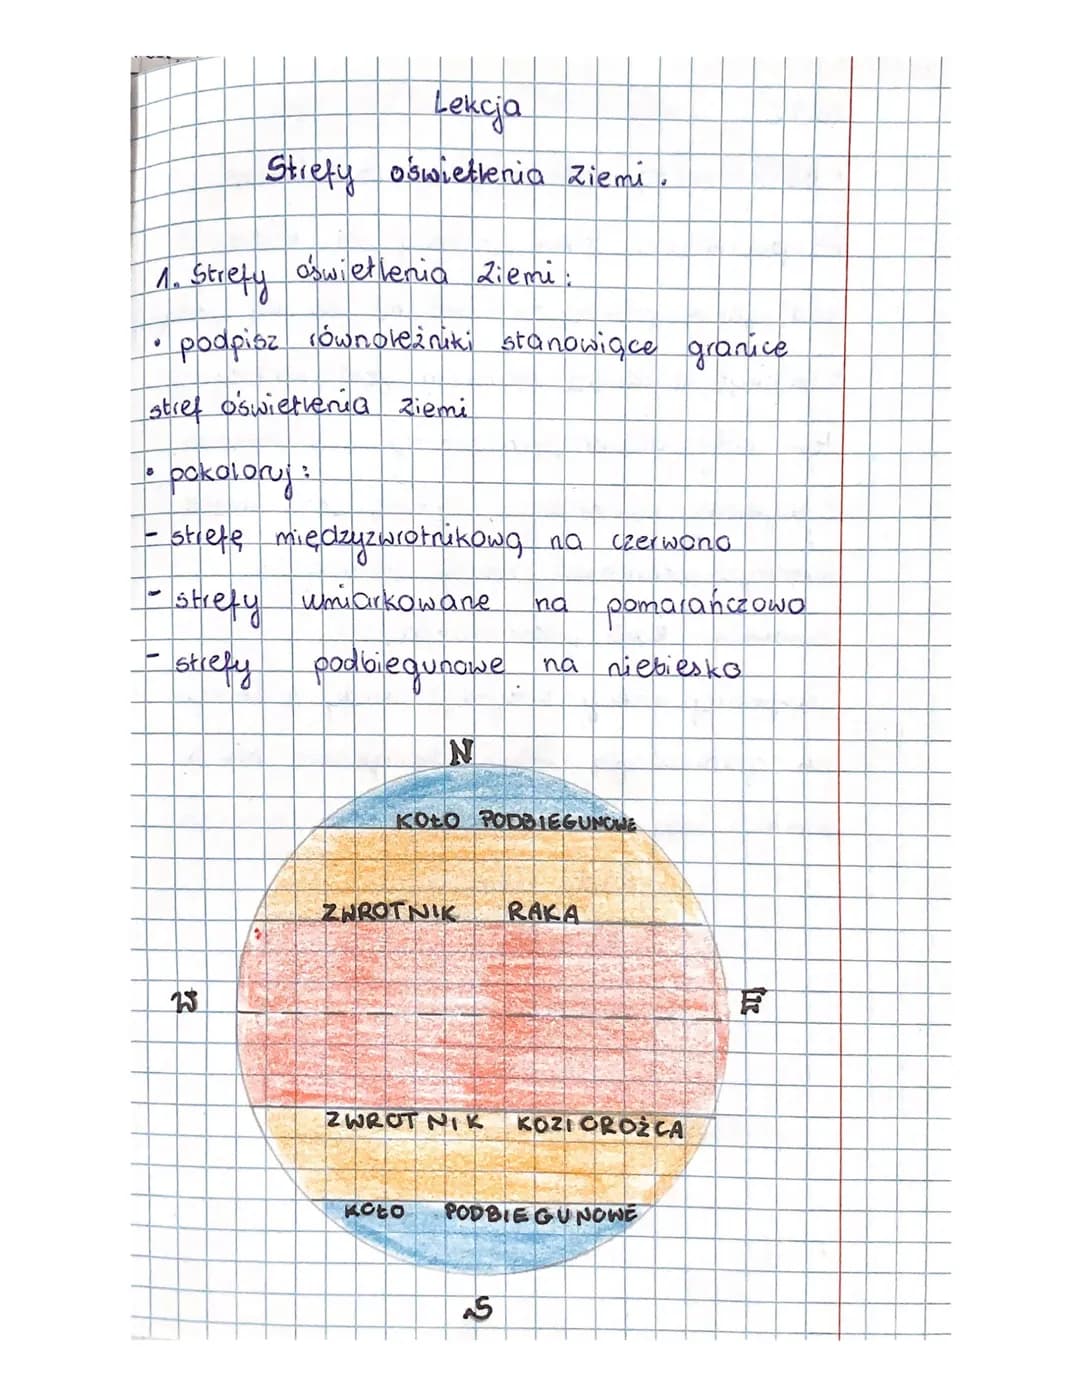 Lekcja
Strefy oświetlenia Ziemi.
1. Strefy oświetlenia Ziemi:
• podpisz równoleżniki stanowiące granice
stref oświetlenia Ziemi
• pokoloruj:
- strefę międzyzwrotnikową na czerwono
- strefy umiarkowane na pomarańczowo
- strefy podbiegunowe na niebiesko
N
KOŁO PODBIEGUNOWE
ZWROTNIK RAKA
W E
ZWROTNIK KOZIOROŻCA
KOŁO PODBIEGUNOWE
S